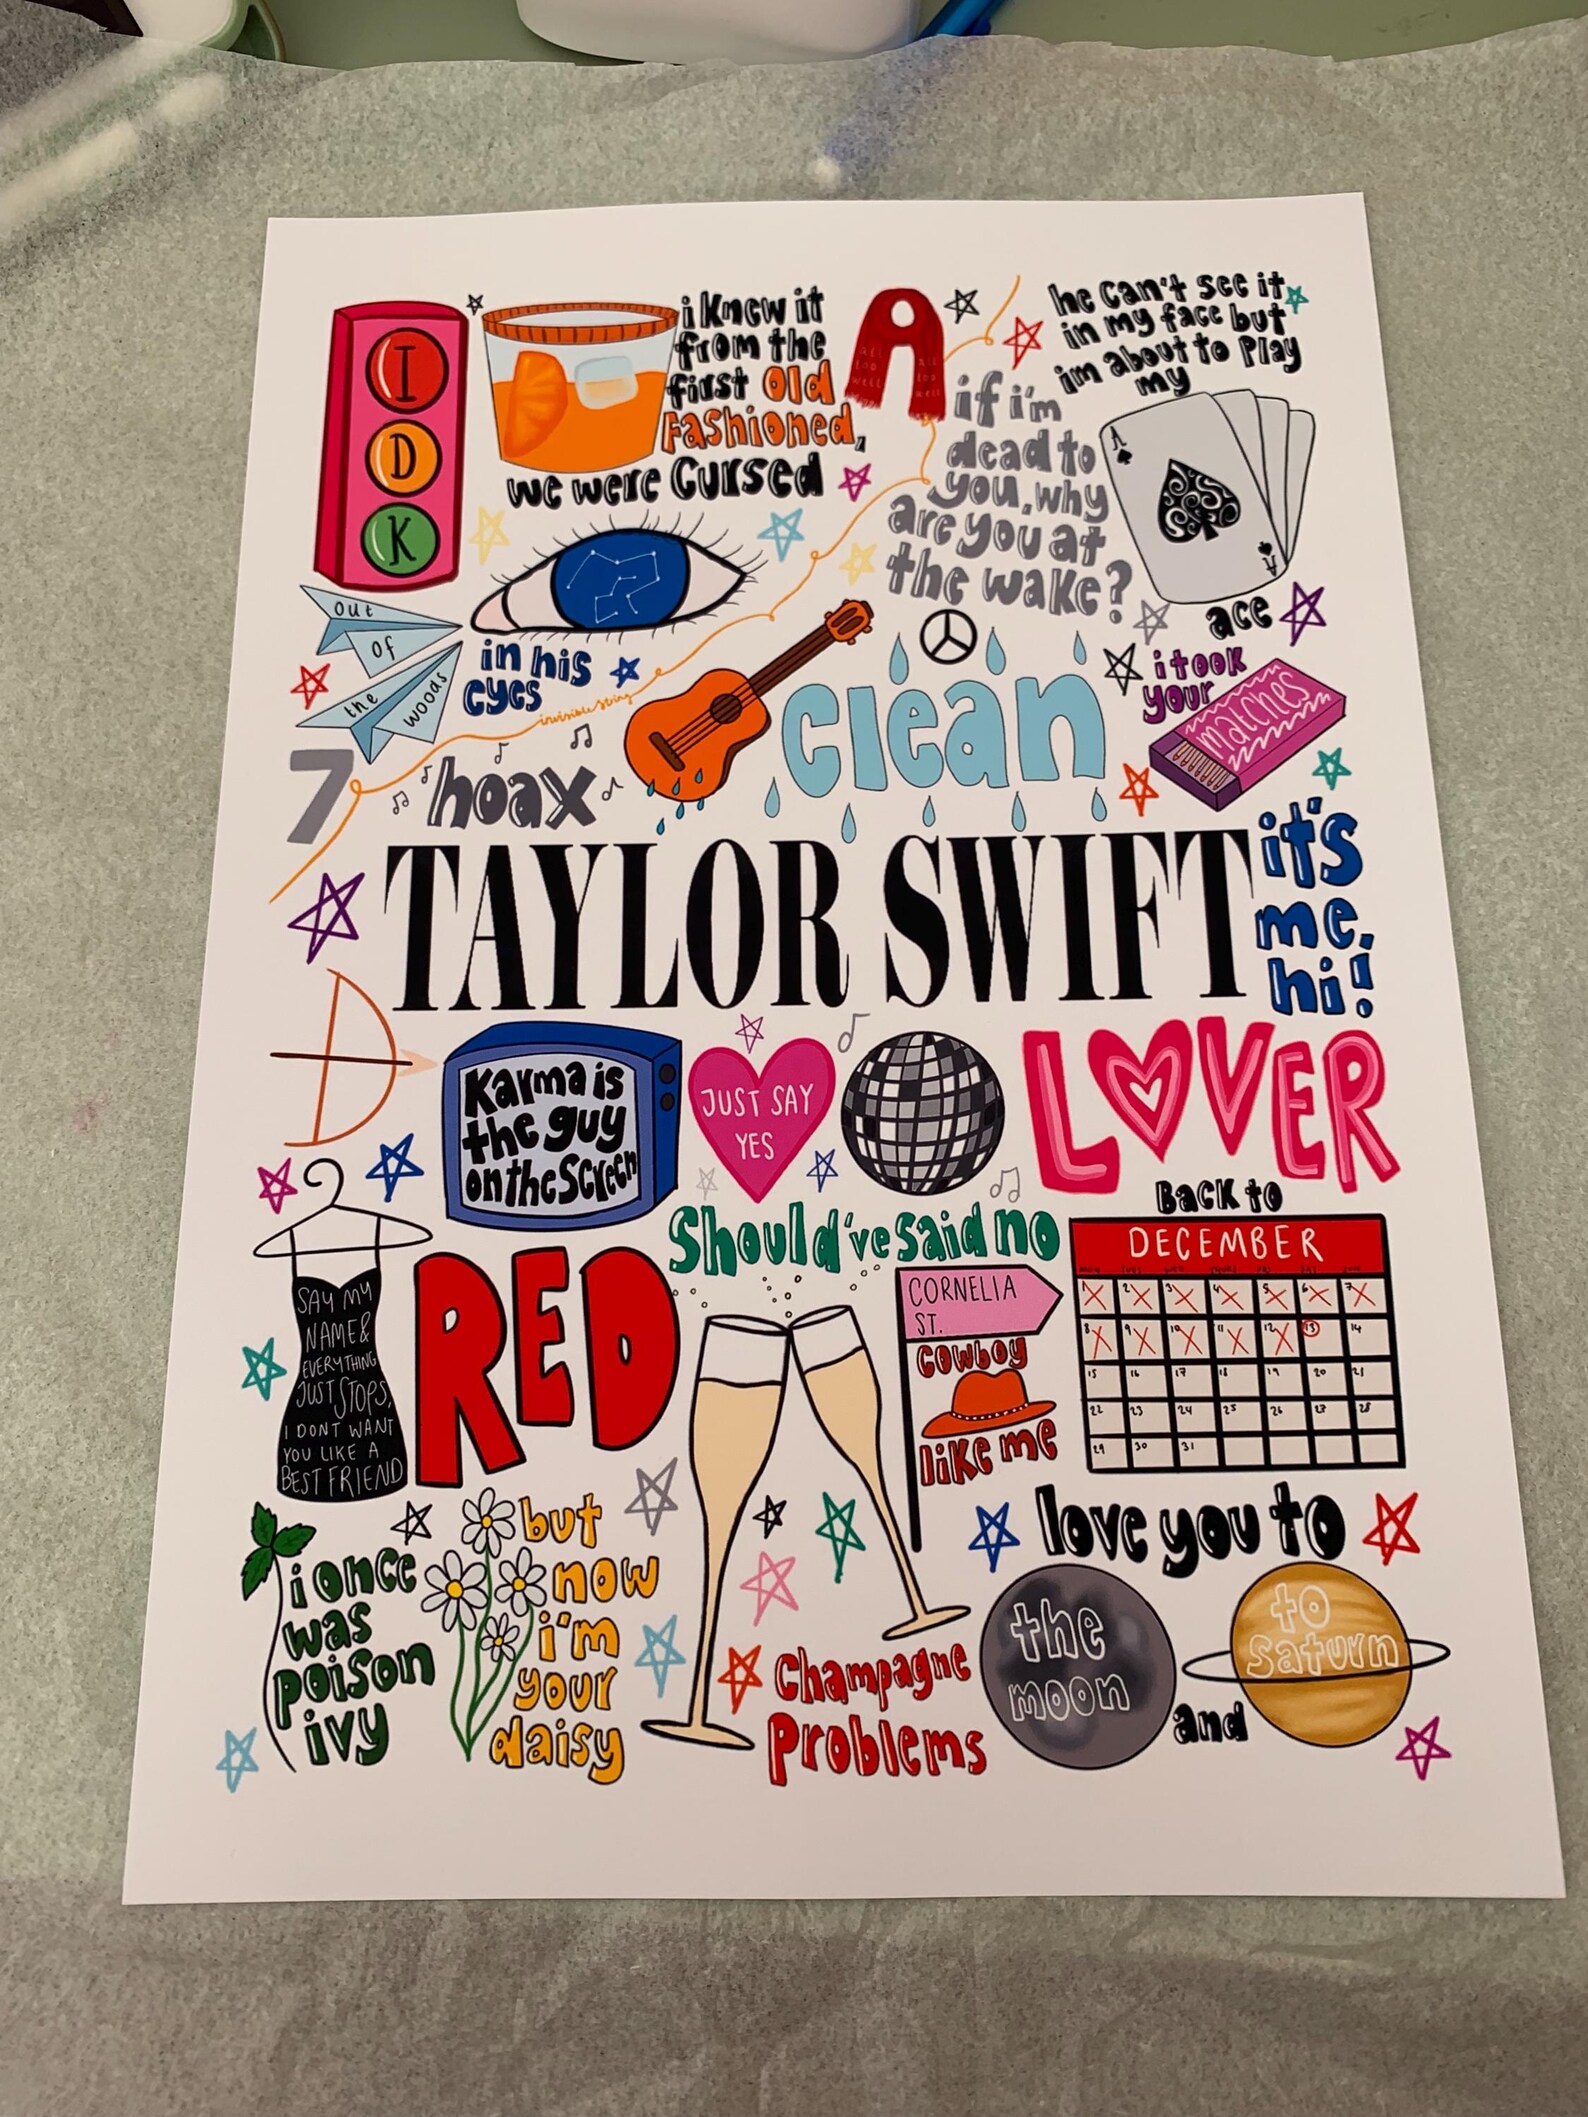 I
D
K
i knew it
from the
first Old
Fashioned,
we were cursed
ALL
TOO
WELL
ALL
TOO
WELL
he can't see it
in my face but
im about to Play
my
A
A
ace
if i'm
dead to
you, why
are you at
the wake?
out
of
the
woods
in his
eyes
invisible string
7
hoax
clean
i took
your
matches
TAYLOR SWIFT
it's
me,
hi!
Karma is
the guy
on the Screen
JUST SAY
YES
LOVER
Should've said no
BACK to
DECEMBER
1 2 3 4 5 6 7
8 9 10 11 12 13 14
15 16 17 18 19 20 21
22 23 24 25 26 27 28
29 30 31
SAY MY
NAME &
EVERYTHING
JUST STOPS,
I DONT WANT
YOU LIKE A
BEST FRIEND
RED
CORNELIA
ST.
COWBOY
like me
i once
was
poison
ivy
but
now
i'm
your
daisy
Champagne
Problems
love you to
the
moon
and
to
saturn